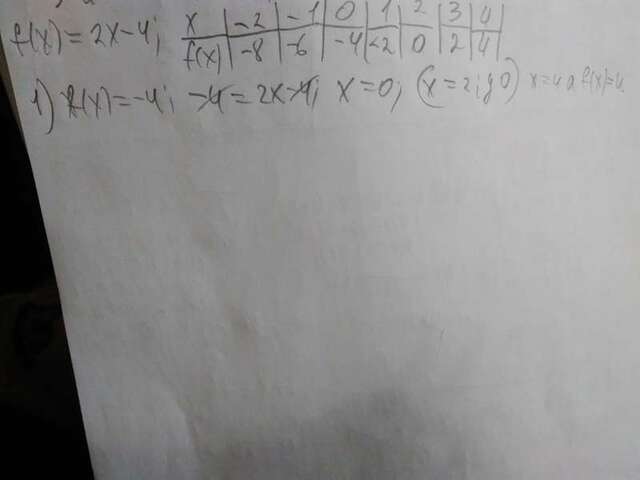 f(x) = 2x - 4; x | -2 | -1 | 0 | 1 | 2 | 3 | 4 |
f(x) | -8 | -6 | -4 | -2 | 0 | 2 | 4 |
1) f(x) = -4; -4 = 2x - 4; x = 0; (x = 2; 0) x = 4 a f(x) = 4.